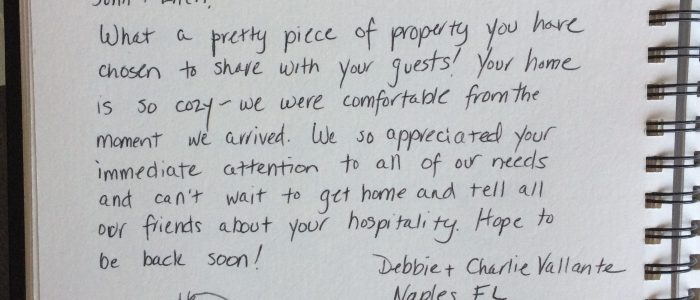 What a pretty piece of property you have
chosen to share with your guests! Your home
is so cozy - we were comfortable from the
moment we arrived. We so appreciated your
immediate attention to all of our needs
and can't wait to get home and tell all
our friends about your hospitality. Hope to
be back soon!
Debbie + Charlie Vallante
Naples FL